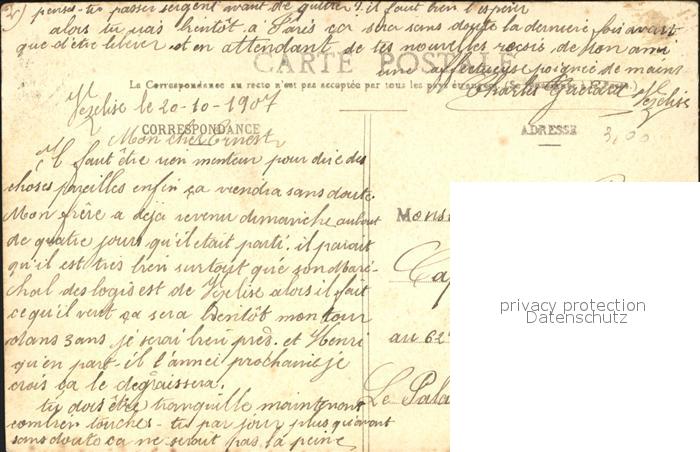 2) penses-tu passer sergent avant de quitter? il faut bien l'espérer
alors tu vas bientôt à Paris car sera sans doute la dernière fois avant
que d'être libérer et en attendant de tes nouvelles reçois de ton ami
CARTE POSTALE
une affectueuse poignée de mains
La Correspondance au recto n'est pas acceptée par tous les pays étrangers
Charles Vezelise
Vezelise le 20-10-1907
CORRESPONDANCE
ADRESSE
3,00
Mon cher Ernest
Il faut être rien menteur pour dire des
choses pareilles enfin ça viendra sans doute.
Mon frère a déja revenu dimanche au bout
de quatre jours qu'il était parti. il parait
qu'il est très bien surtout que son Maré-
chal des logis est de Vezelise alors il fait
ce qu'il veut ça sera bientôt mon tour
dans 3 ans je serai bien près. et Henri
qu'en part-il l'année prochaine je
crois ça le dégraissera.
tu dois être tranquille maintenant
combien touches-tu par jour plus qu'avant
sans doute ça ne serait pas la peine
Mons
Cap
au 62
Le Pala
privacy protection
Datenschutz